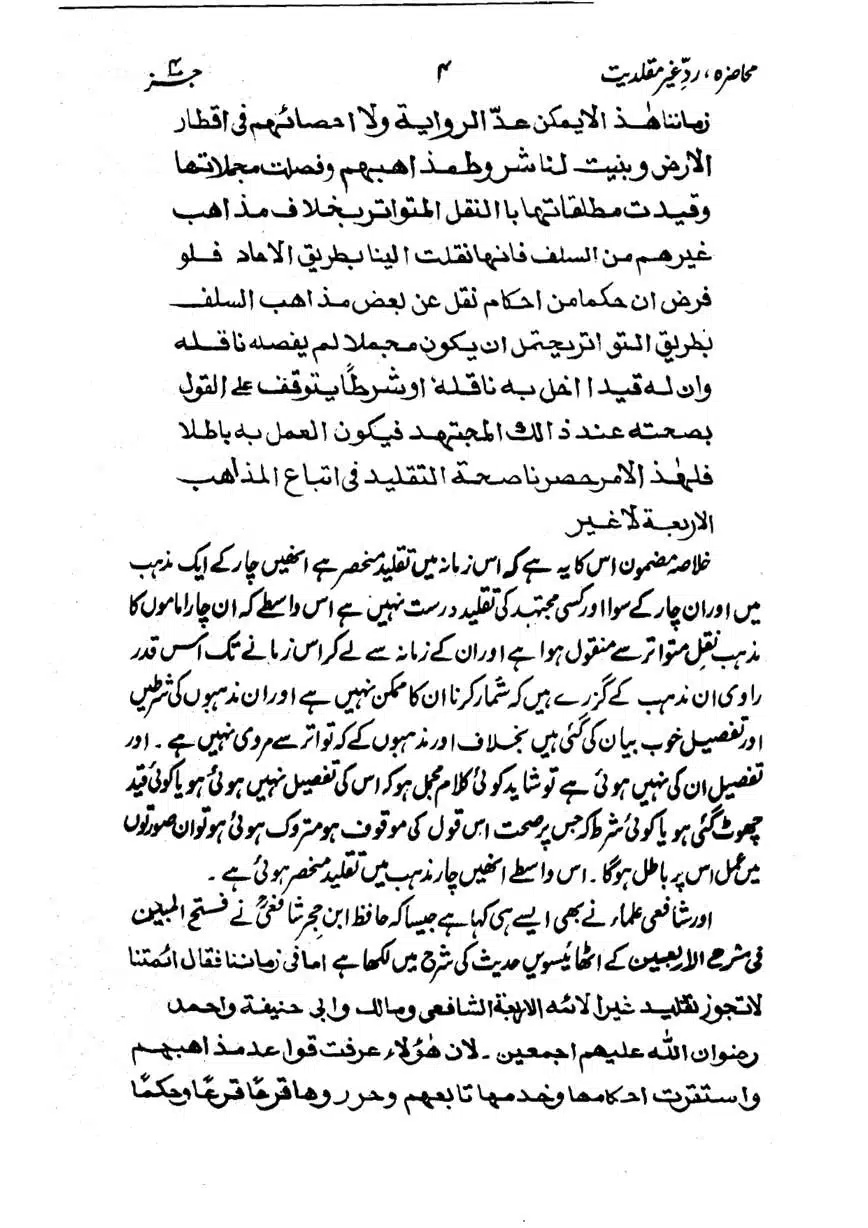 محاضره، ردِّ غیر مقلدیت ۴ جز ۴
زماننا هٰذ الايمكن عدّ الرواية ولا احصائهم فی اقطار
الارض وبنيت لنا شروط مذاهبهم وفصلت مجملاتها
وقيدت مطلقاتها با النقل المتواتر بخلاف مذاهب
غيرهم من السلف فانها نقلت الينا بطريق الاحاد فلو
فرض ان حكما من احكام نقل عن بعض مذاهب السلف
بطريق التواتر يحتمل ان يكون مجملا لم يفصله ناقله
وان له قيدا اخل به ناقله او شرطًا يتوقف على القول
بصحته عند ذالك المجتهد فيكون العمل به باطلا
فلهٰذ الامر حصرنا صحة التقليد فی اتباع المذاهب
الاربعة لا غير
خلاصہ مضمون اس کا یہ ہے کہ اس زمانہ میں تقلید منحصر ہے انھیں چار کے ایک مذہب
میں اور ان چار کے سوا اور کسی مجتہد کی تقلید درست نہیں ہے اس واسطے کہ ان چار اماموں کا
مذہب نقلِ متواتر سے منقول ہوا ہے اور ان کے زمانہ سے لے کر اس زمانے تک اس قدر
راوی ان مذہب کے گزرے ہیں کہ شمار کرنا ان کا ممکن نہیں ہے اور ان مذہبوں کی شرطیں
اور تفصیل خوب بیان کی گئی ہیں بخلاف اور مذہبوں کے کہ تواتر سے مروی نہیں ہے۔ اور
تفصیل ان کی نہیں ہوئی ہے تو شاید کوئی کلام مجمل ہو کہ اس کی تفصیل نہیں ہوئی ہو یا کوئی قید
چھوٹ گئی ہو یا کوئی شرط کہ جس پر صحت اس قول کی موقوف ہو متروک ہوئی ہو تو ان صورتوں
میں عمل اس پر باطل ہوگا۔ اس واسطے انھیں چار مذہب میں تقلید منحصر ہوئی ہے۔
اور شافعی علماء نے بھی ایسے ہی کہا ہے جیسا کہ حافظ ابن حجر شافعیؒ نے فتح المبین
فی شرح الاربعین کے اٹھائیسویں حدیث کی شرح میں لکھا ہے اما فی زماننا فقال ائمتنا
لاتجوز تقليد غير الائمه الاربعة الشافعی ومالك وابی حنيفة واحمد
رضوان الله عليهم اجمعين۔ لان هؤلاء عرفت قواعد مذاهبهم
واستقرت احكامها وخدمها تابعهم وحرروها فرعًا فرعًا وحكمًا